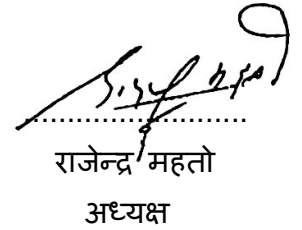 ..........................
राजेन्द्र महतो
अध्यक्ष